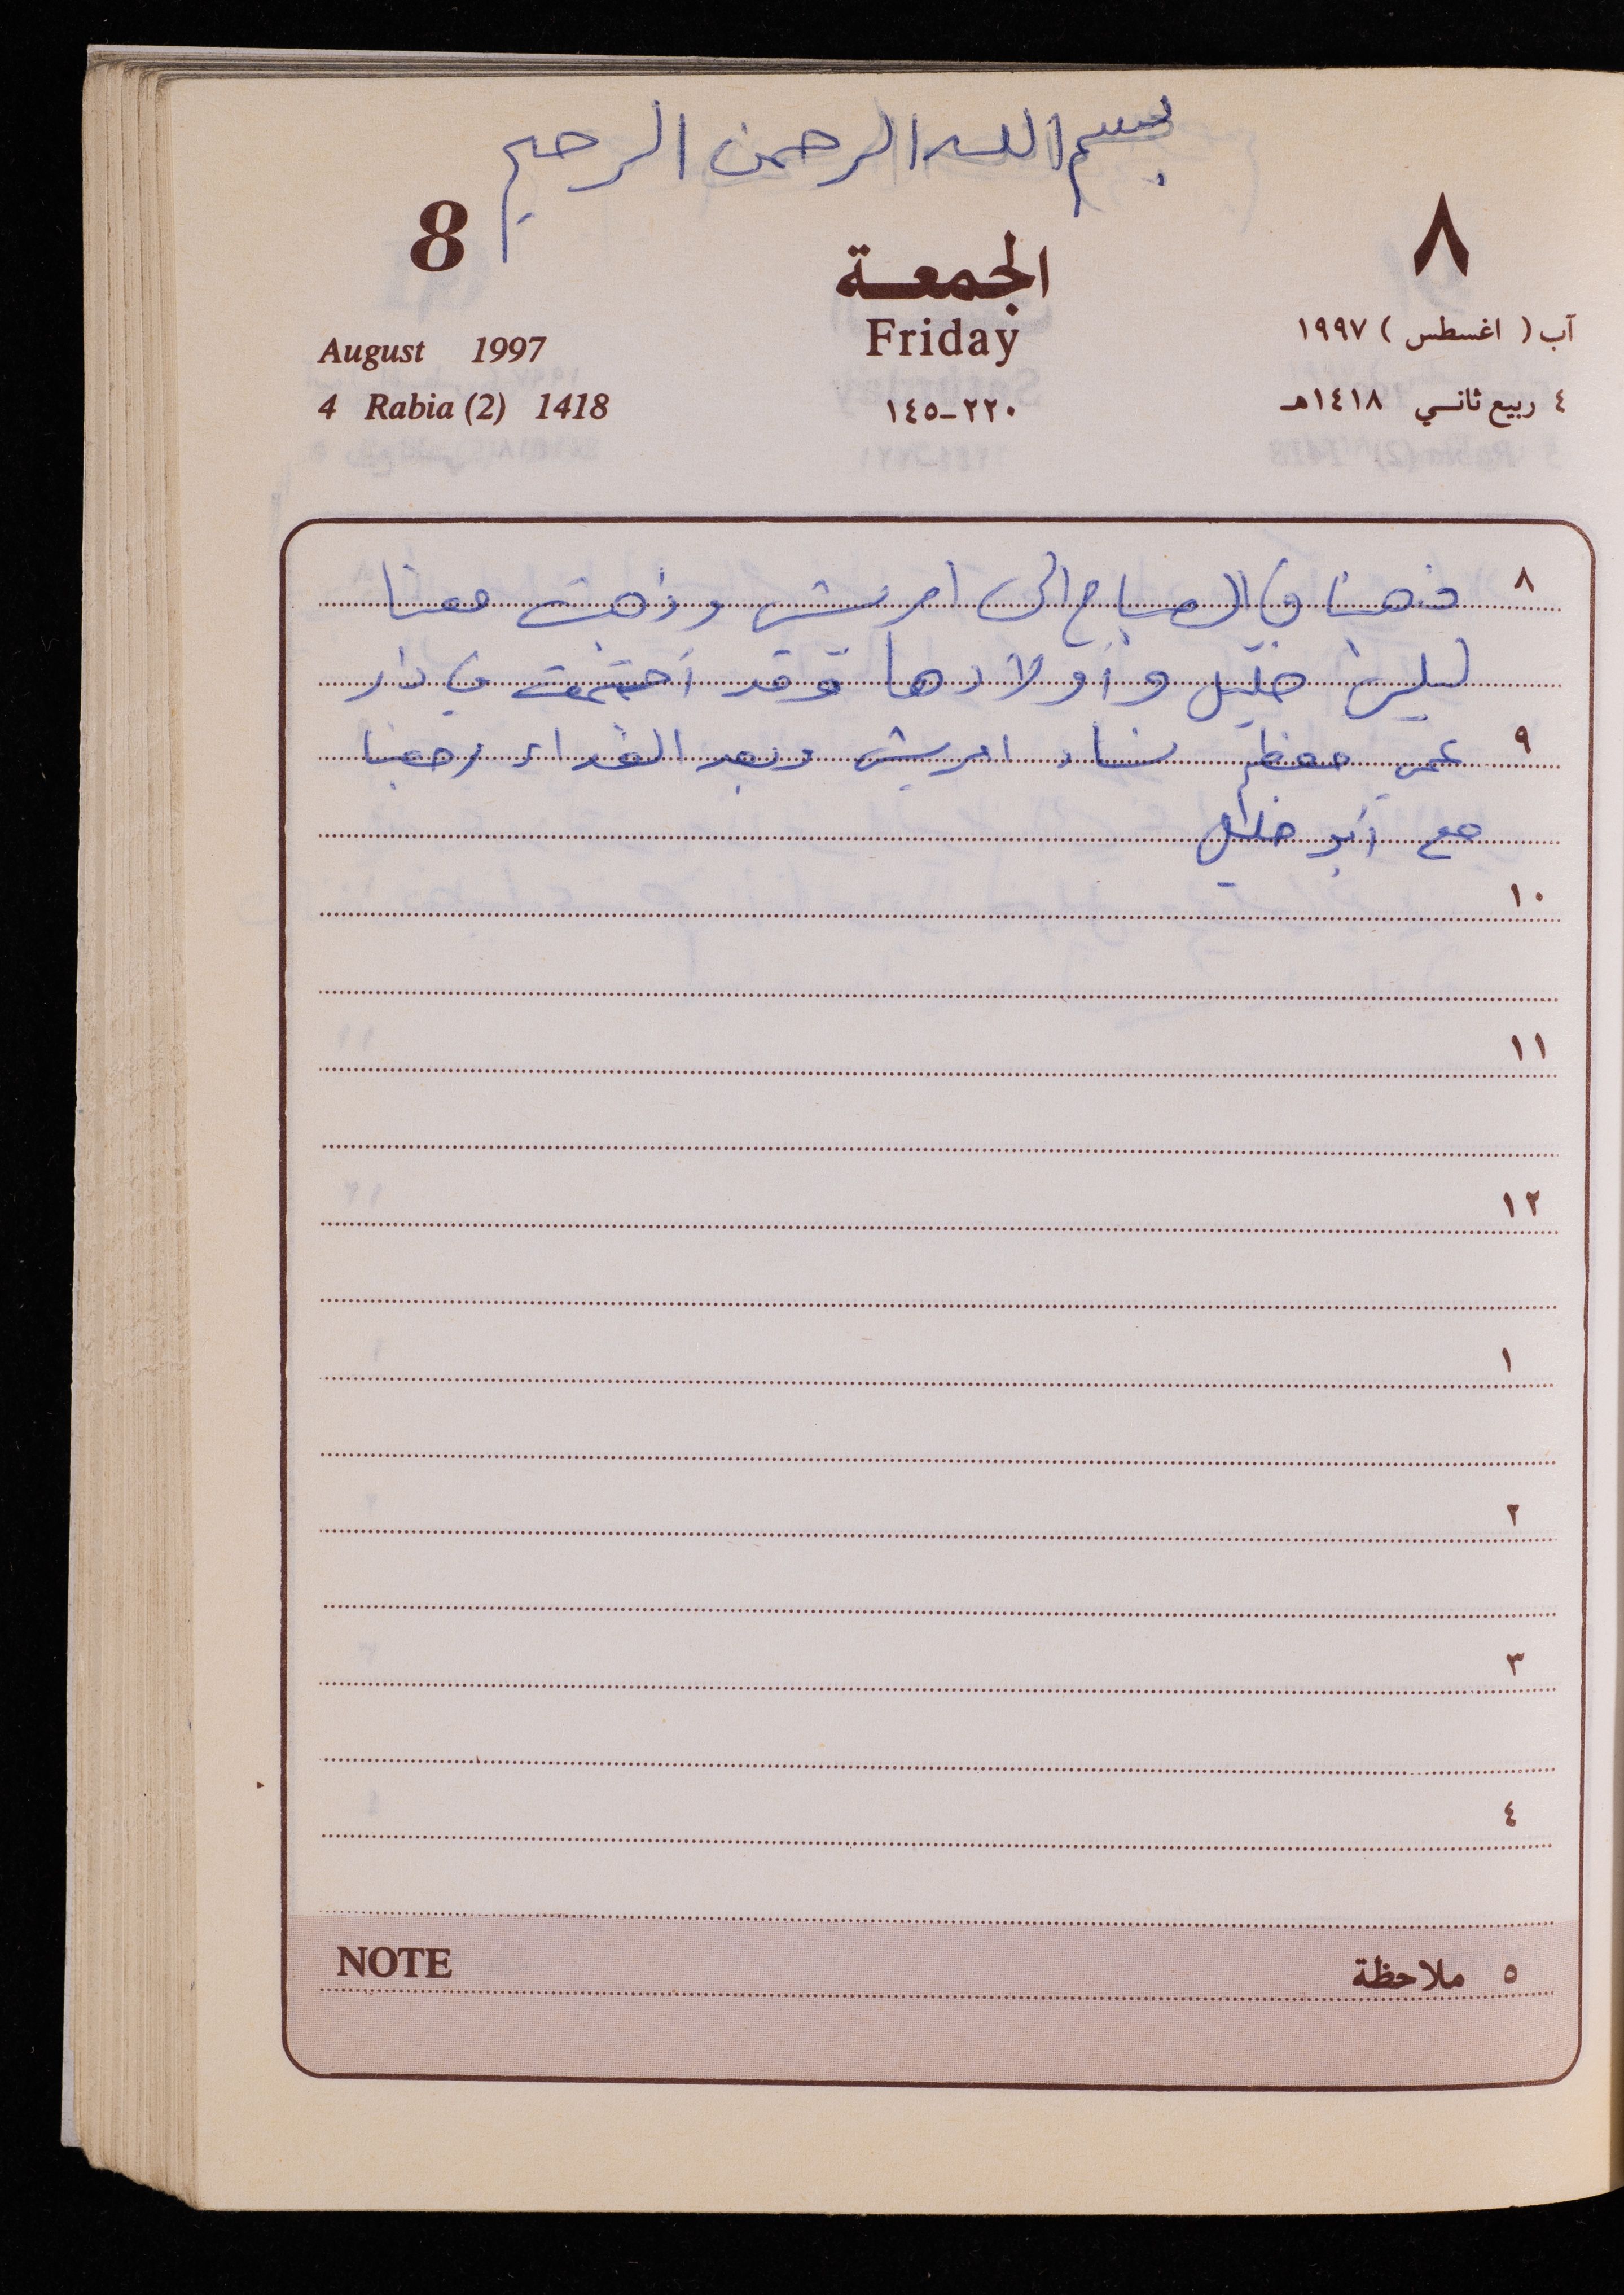 بسم الله الرحمن الرحيم
8
الجمعة
٨
Friday
August 1997
آب ( اغسطس ) ١٩٩٧
4 Rabia (2) 1418
٢٢٠-١٤٥
٤ ربيع ثاني ١٤١٨هـ
٨ ذهبنا في الصباح الى امريش وذهبت معنا
خليل وأولادها وقد اجتمعت في دار
٩ عمي معظم نساء امريش وبعد الغداء رجعنا
مع أبو خليل
١٠
١١
١٢
١
٢
٣
٤
NOTE
٥ ملاحظة